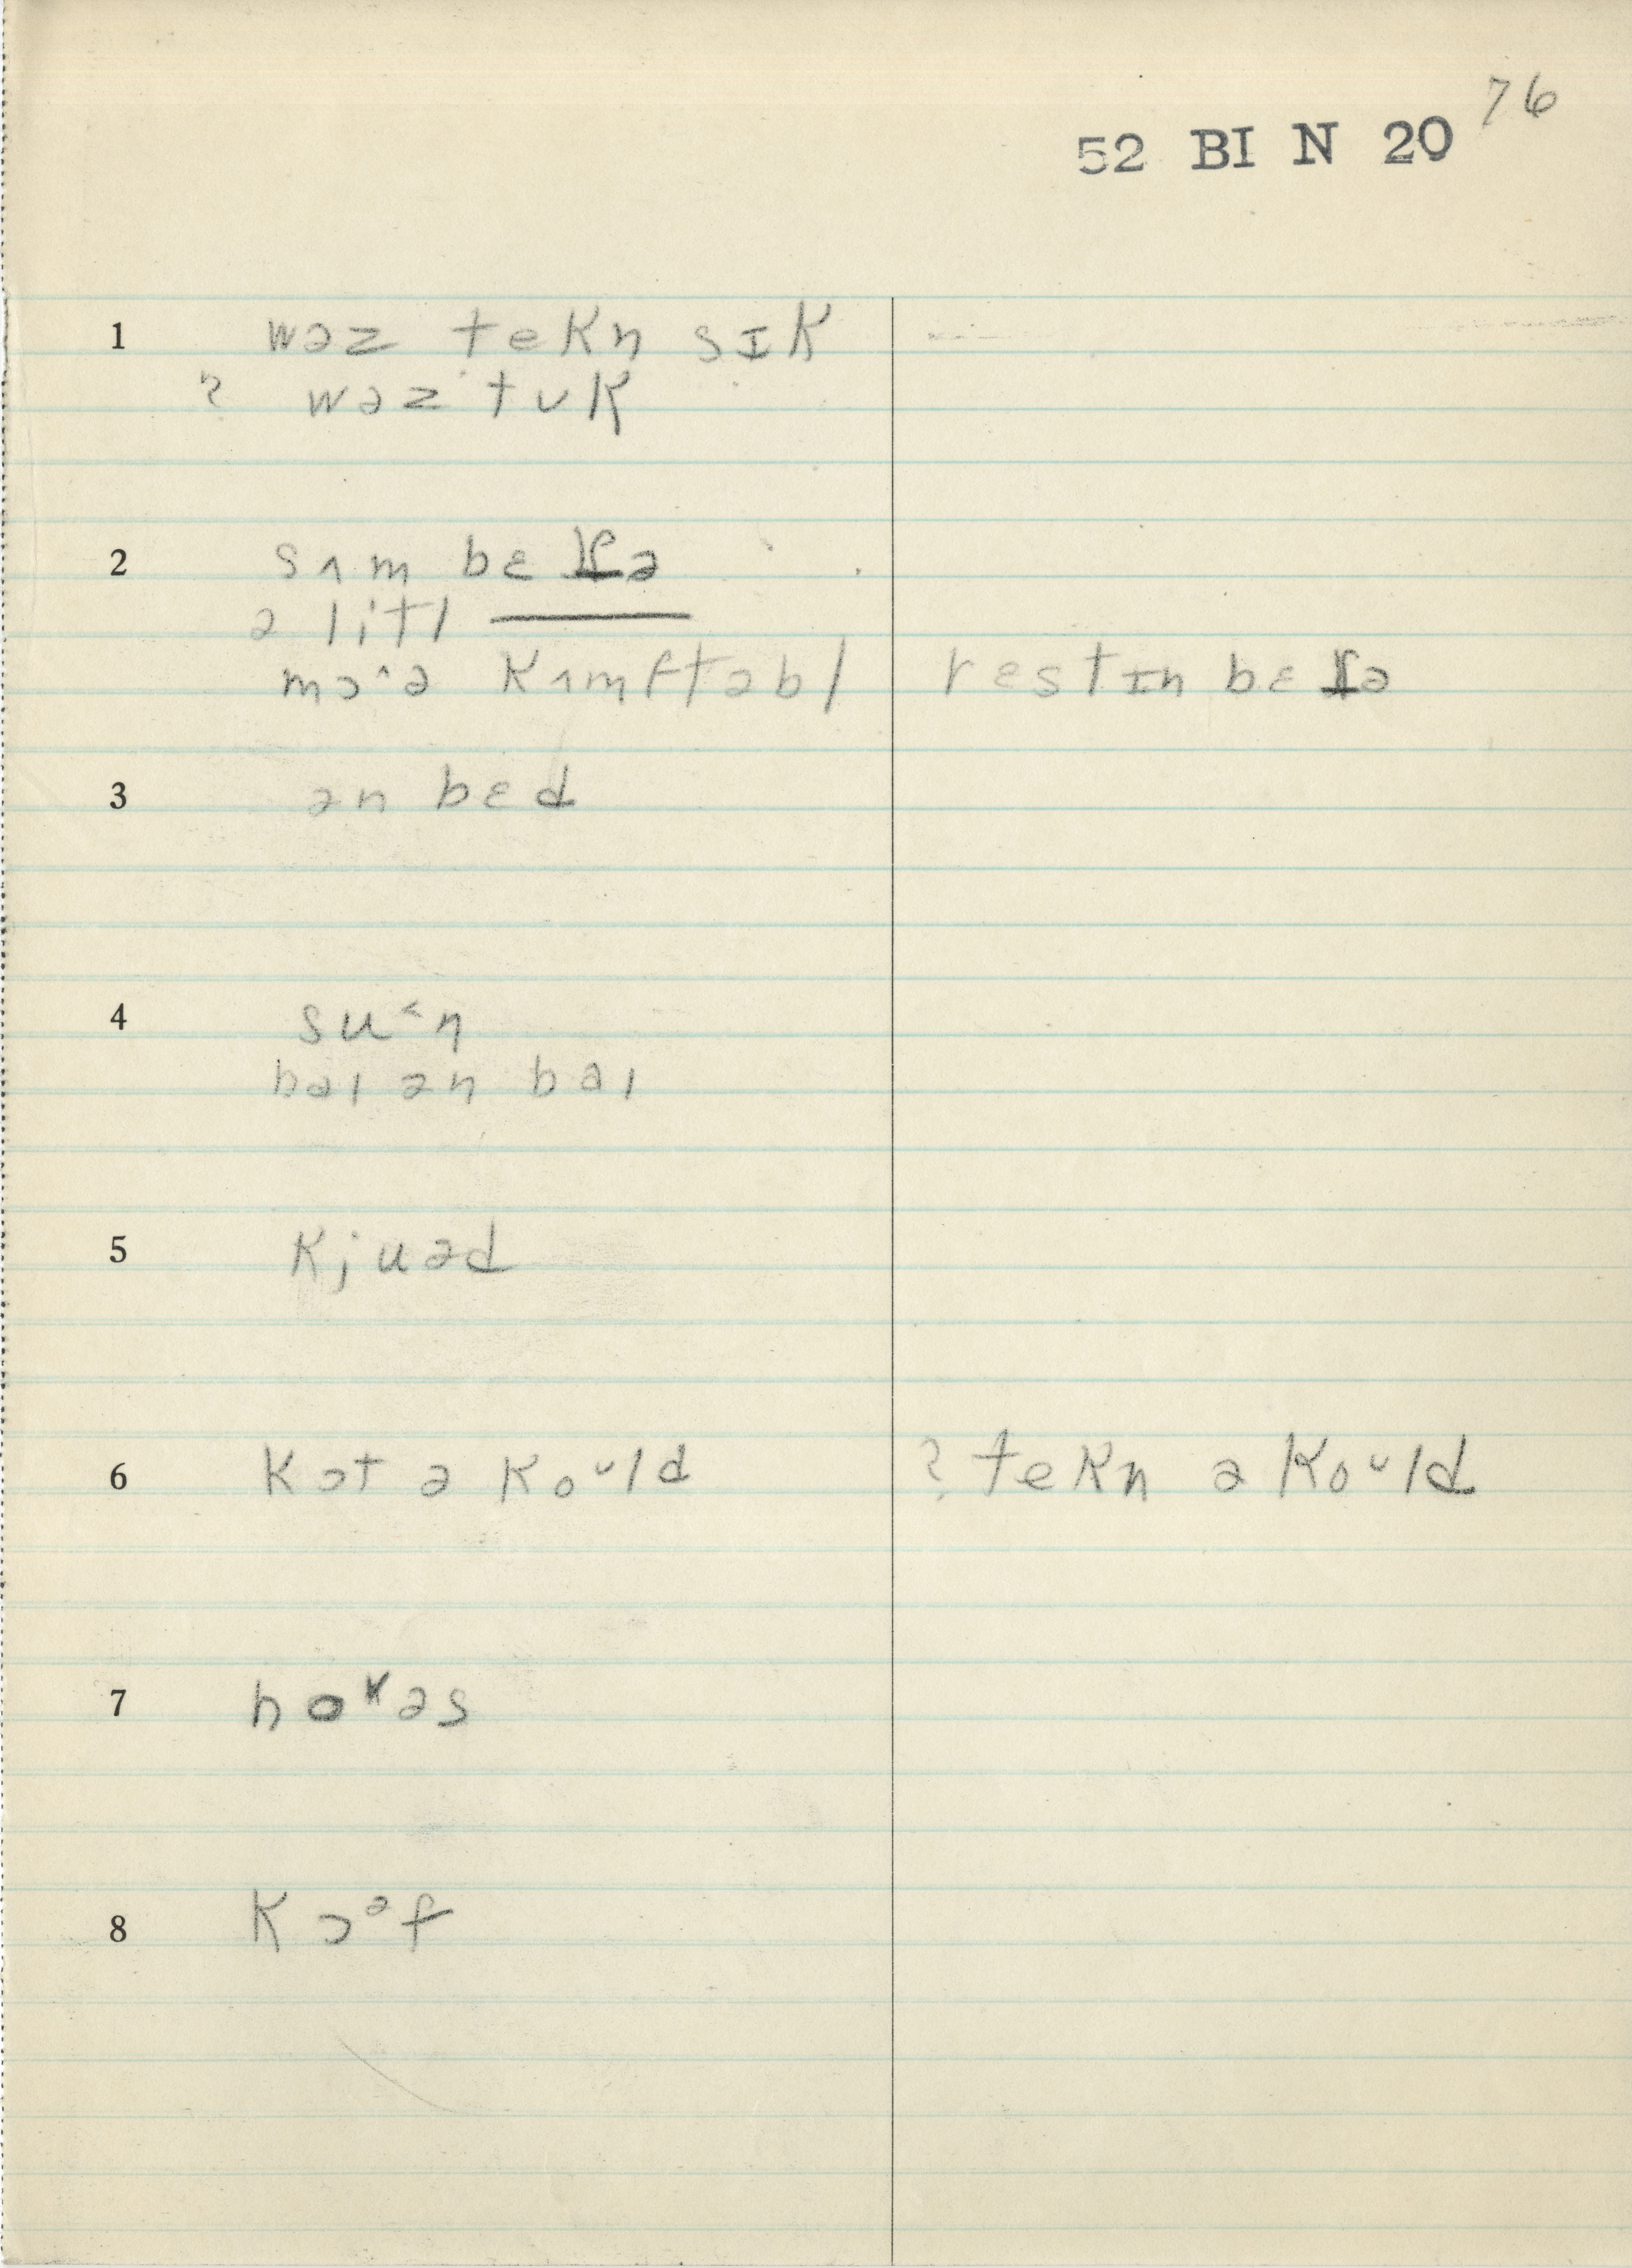 76
52 BI N 20
1 wəz tekn sɪk
? wəz tʊk
2 sʌm bɛɾə
ə litl ———
mɔ˄ə kʌmftəbl restɪn bɛɾə
3 ən bɛd
4 su˂n
baɪ ən baɪ
5 kjuəd
6 kɔt ə koᶸld ? tekn ə koᶸld
7 həs
8 kɔᵊf